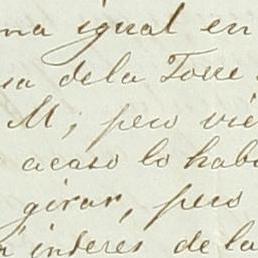 na igual en
ua dela Torre
M; pero vie
acaso lo hab
girar, pero
interes de la